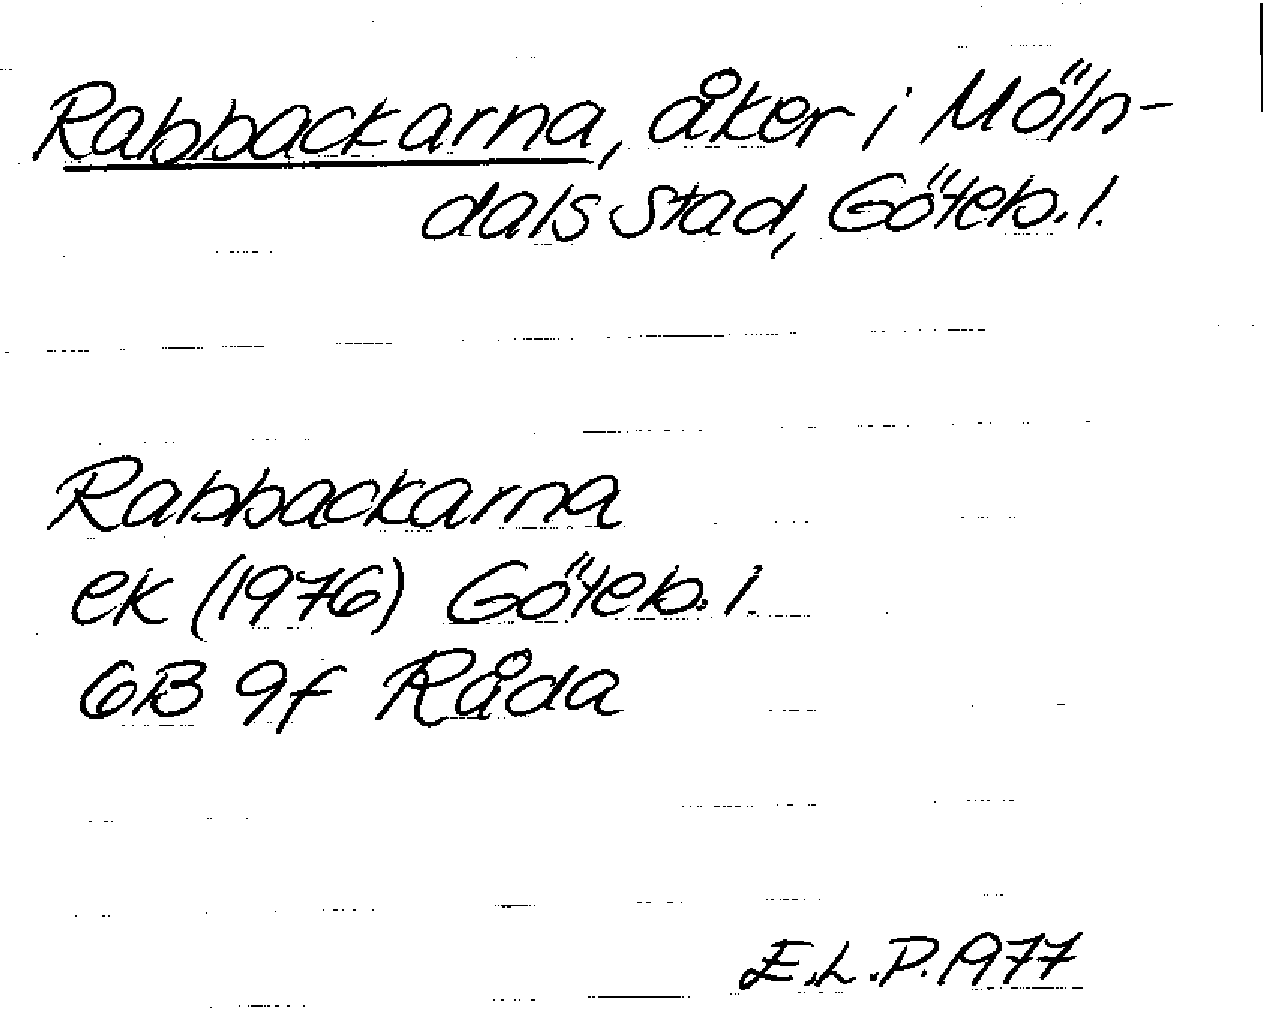 Rabbackarna, åker i Möln-
dals stad, Göteb. l.
Rabbackarna
ek (1976) Göteb. l.
6B 9f Råda
E.L.P. 1977